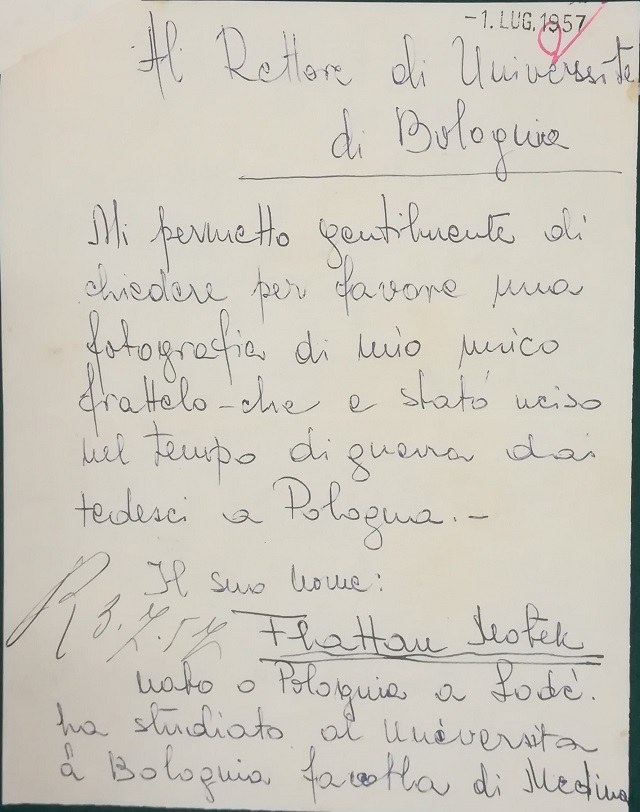 -1. LUG. 1957
Al Rettore di Universite
di Bolognia
Mi permetto gentilmente di
chiedere per favore una
fotografia di mio unico
frattelo - che e stato uciso
nel tempo di guerra dai
tedesci a Pologna. -
Il suo nome:
R 3.7.57
Flattau Motek
nato a Polognia a Lodz.
ha studiato al università
a Bolognia facolta di Medina